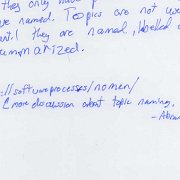 they only have
named. Topics are not
until they are named, labelled
summarized.
://softwareprocesses/nomen/
more discussion about topic naming.
- Abram